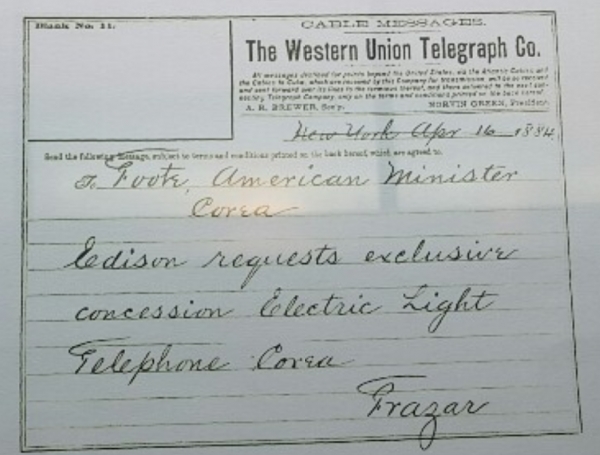 Blank No. 11.
CABLE MESSAGES.
The Western Union Telegraph Co.
All messages destined for points beyond the United States, via the Atlantic Cables, and
the Cables to Cuba, which are received by this Company for transmission, will be so received
and sent forward over its lines to the terminus thereof, and there delivered to the next
Telegraph Company, only on the terms and conditions printed on the back hereof.
A. R. BREWER, Sec'y. NORVIN GREEN, President.
New York Apr 16 1884
Send the following Message, subject to terms and conditions printed on the back hereof, which are agreed to.
To Foote, American Minister
Corea
Edison requests exclusive
concession Electric Light
Telephone Corea
Frazar